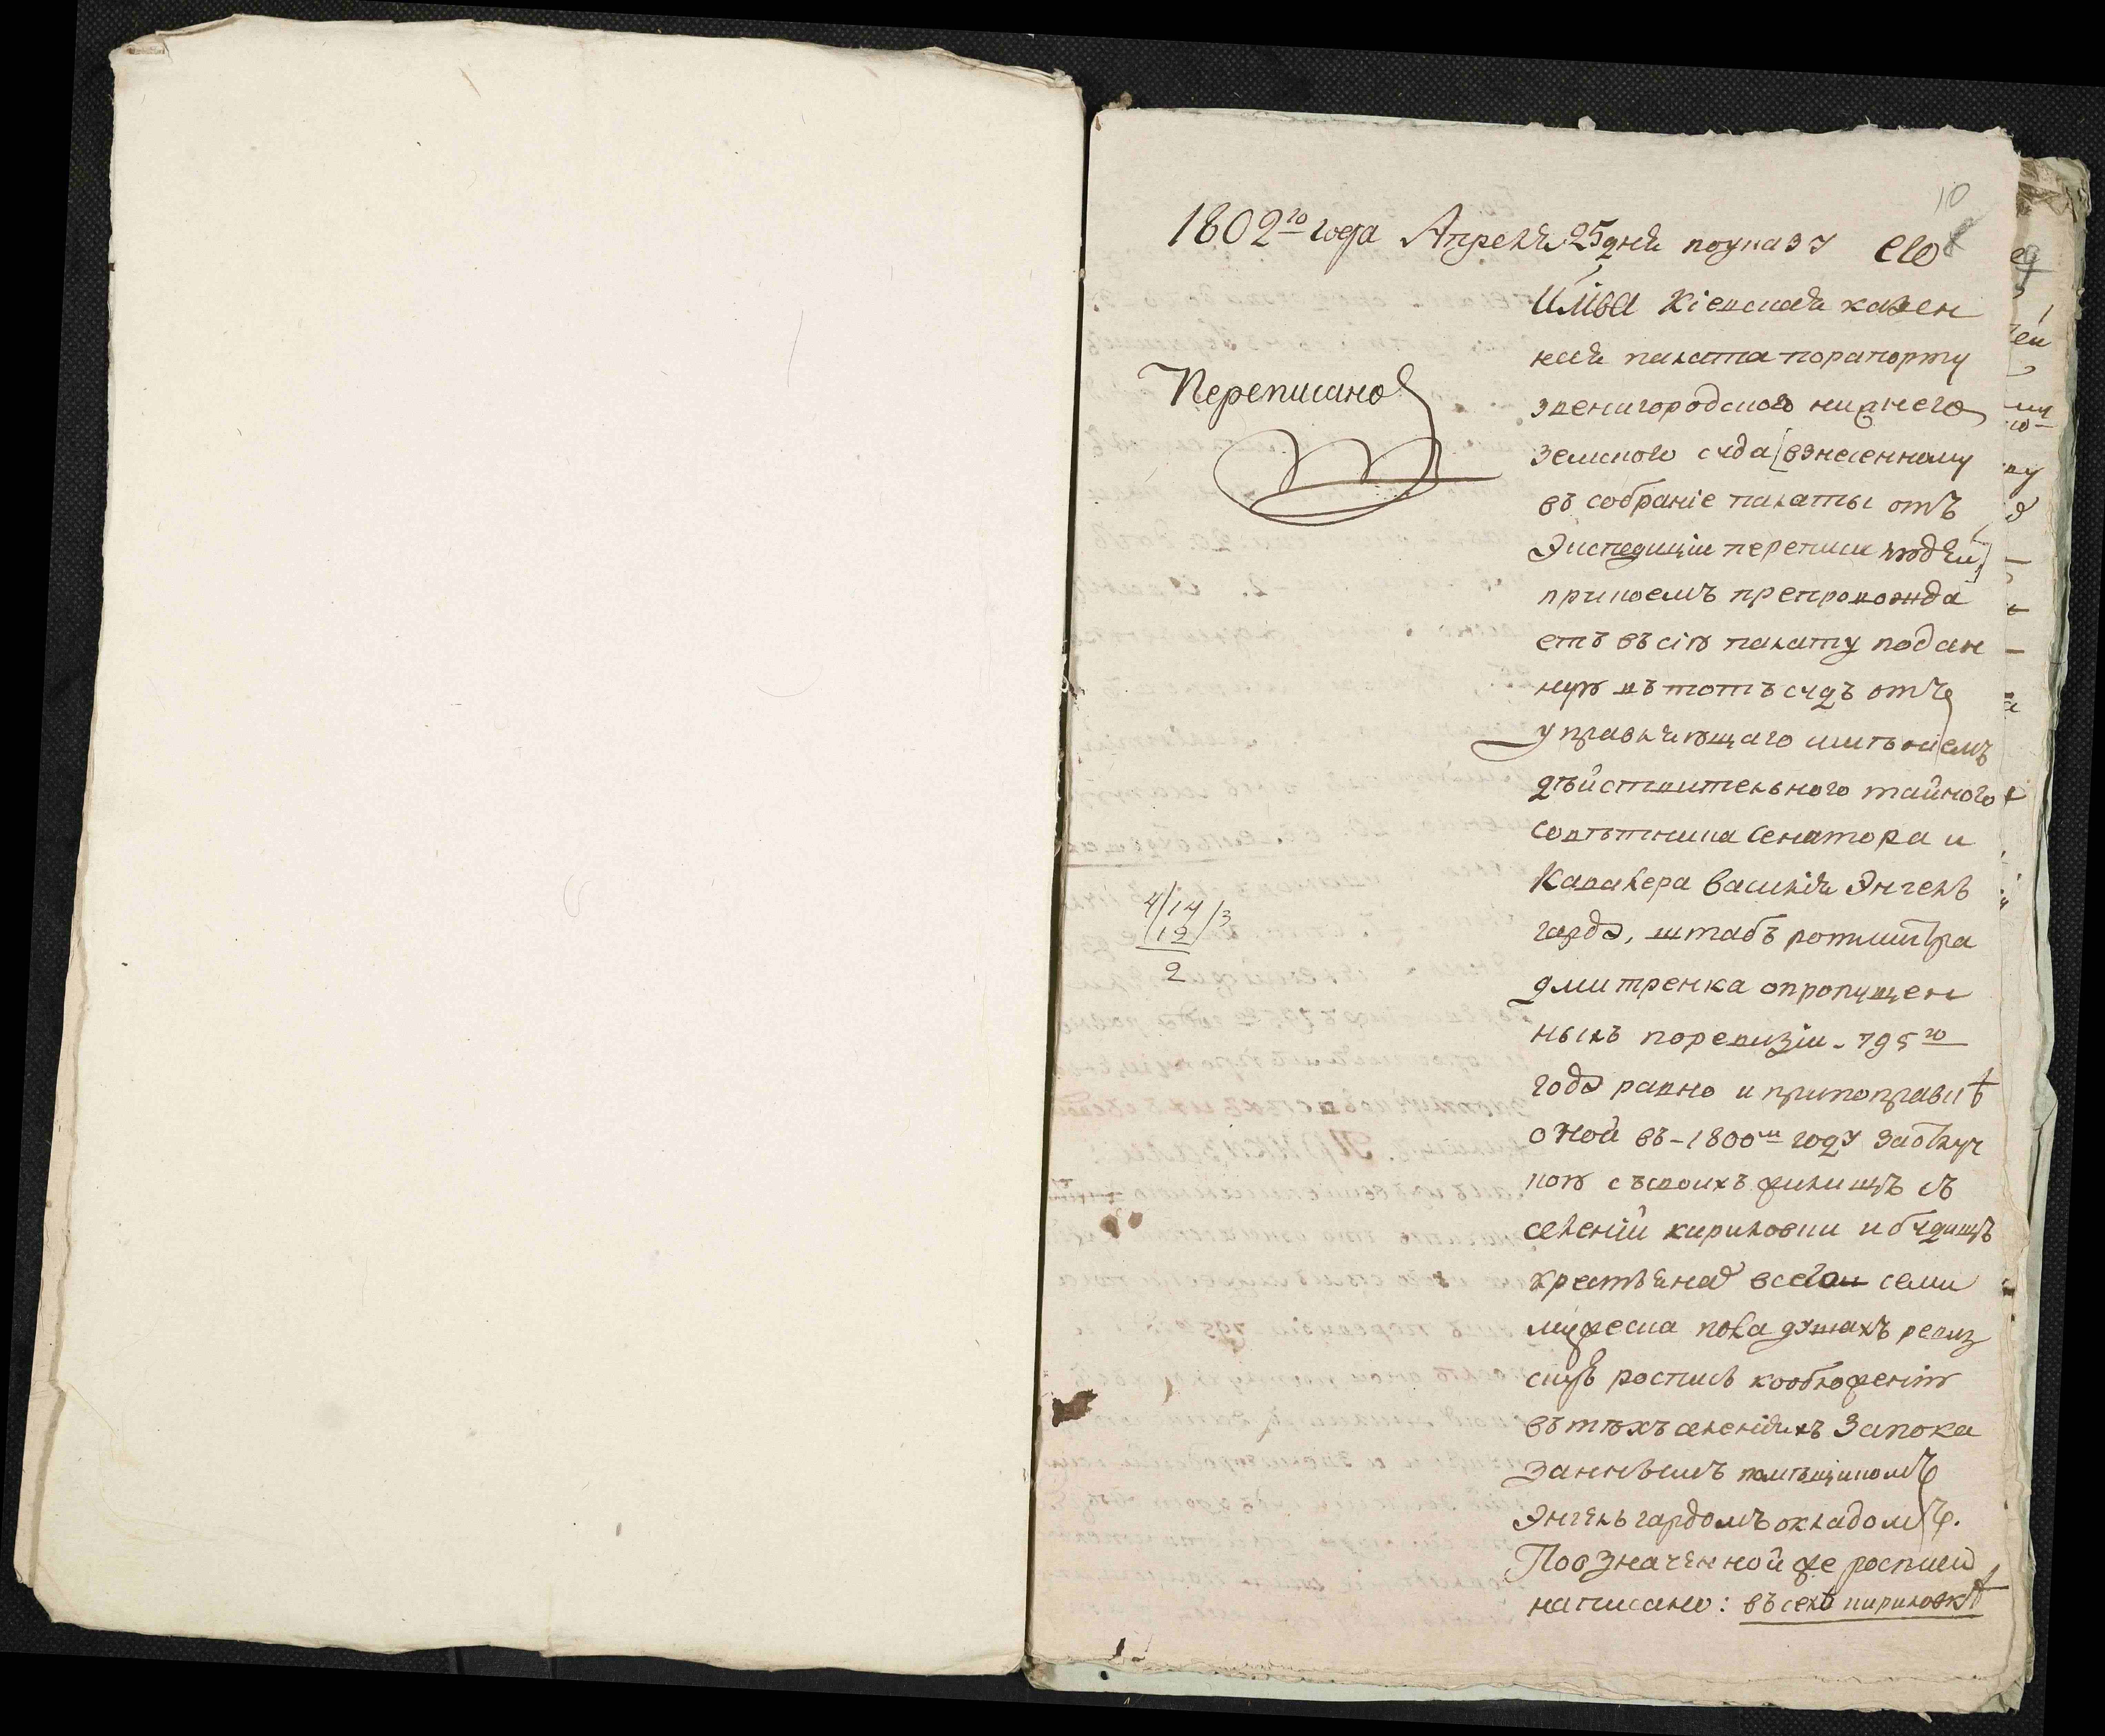 10
1802го года Апреля 25 дня поуказу его
Імва Кіевская казен
ная палата порапорту
звенигородского нижнего
земского суда [взнесенному
въ собраніе палаты отъ
Экспедиціи переписи людей]
прикоемъ препровожда
етъ въ сію палату подан
ную въ тотъ судъ отъ
управляющаго имѣніемъ
дѣйствительного тайного
совѣтника сенатора и
Кавалера василія Энгель
гарда, штабъ ротмистра
дмитренка опропущен
ныхъ поревизіи 795го
года равно и припоправкѣ
оной въ 1800м году заотлуч
кою съсвоихъ жилищъ съ
селеній кириловки и будищъ
крестьянад всего семи
мужеска пола душахъ ревиз
скую роспись кообложенію
въ тѣхъ селеніяхъ запока
заннымъ помѣщикомъ
Энгельгардомъ окладомъ.
Повзначенной же росписи
написано: въ селѣ кириловкѣ
Переписано
4/14/3
12
2